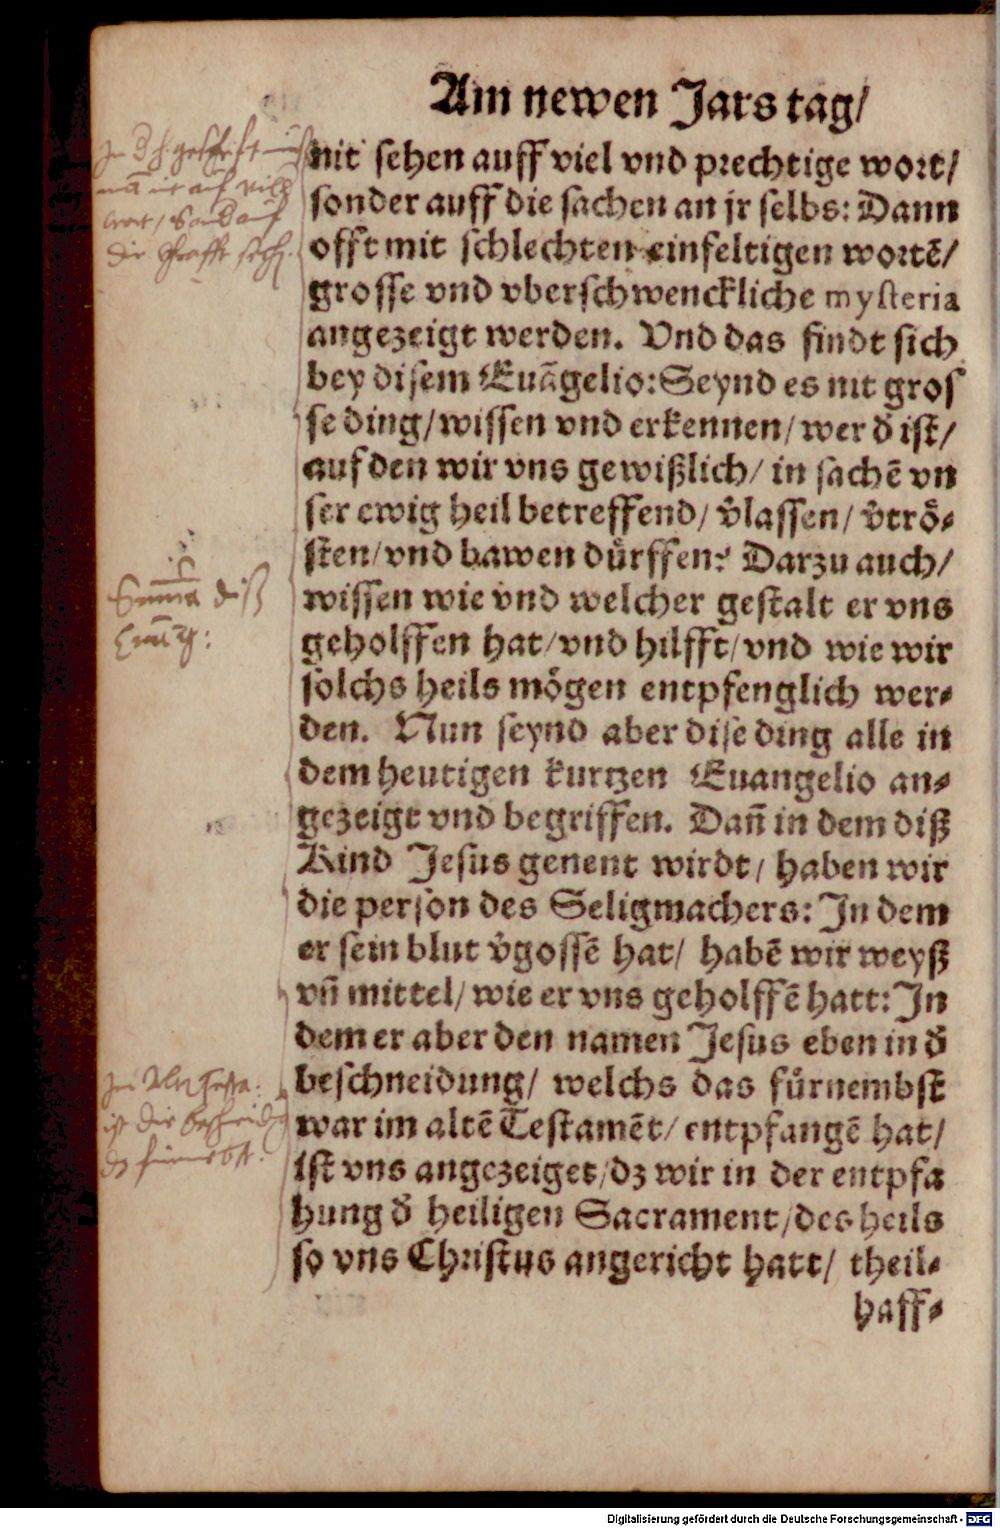 Am newen Jars tag/
nit sehen auff viel vnd prechtige wort/
sonder auff die sachen an jr selbs: Dann
offt mit schlechten einfeltigen wortẽ/
grosse vnd vberschwenckliche mysteria
angezeigt werden. Vnd das findt sich
bey disem Euãgelio: Seynd es nit gros
se ding/ wissen vnd erkennen/ wer d̃ ist/
auf den wir vns gewißlich/ in sachẽ vn
ser ewig heil betreffend/ v̊lassen/ v̊trö⸗
sten/ vnd bawen dürffen? Darzu auch/
wissen wie vnd welcher gestalt er vns
geholffen hat/ vnd hilfft/ vnd wie wir
solchs heils mögen entpfenglich wer⸗
den. Nun seynd aber dise ding alle in
dem heutigen kurtzen Euangelio an⸗
gezeigt vnd begriffen. Dañ in dem diß
Kind Jesus genent wirdt/ haben wir
die person des Seligmachers: In dem
er sein blut v̊gossẽ hat/ habẽ wir weyß
vñ mittel/ wie er vns geholffẽ hatt: In
dem er aber den namen Jesus eben in d̃
beschneidung/ welchs das fürnembst
war im altẽ Testamẽt/ entpfangẽ hat/
ist vns angezeiget/ dz wir in der entpfa
hung d̃ heiligen Sacrament/ des heils
so vns Christus angericht hatt/ theil⸗
haff⸗
Suma diß
Euãg:
Im Alten Testa:
ist die beschneidg
dz furnebst.
Digitalisierung gefördert durch die Deutsche Forschungsgemeinschaft - DFG